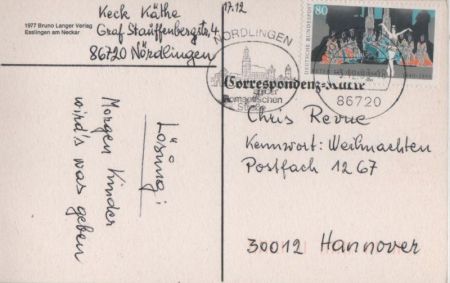 1977 Bruno Langer Verlag
Esslingen am Neckar
Keck Käthe
Graf Stauffenbergstr. 4
86720 Nördlingen
17.12
Lösung:
Morgen Kinder
wird's was geben
NÖRDLINGEN
Romantischen
80
DEUTSCHE BUNDESPOST
86720
Correspondenz-Karte
Chris Revue
Kennwort: Weihnachten
Postfach 1267
30012 Hannover